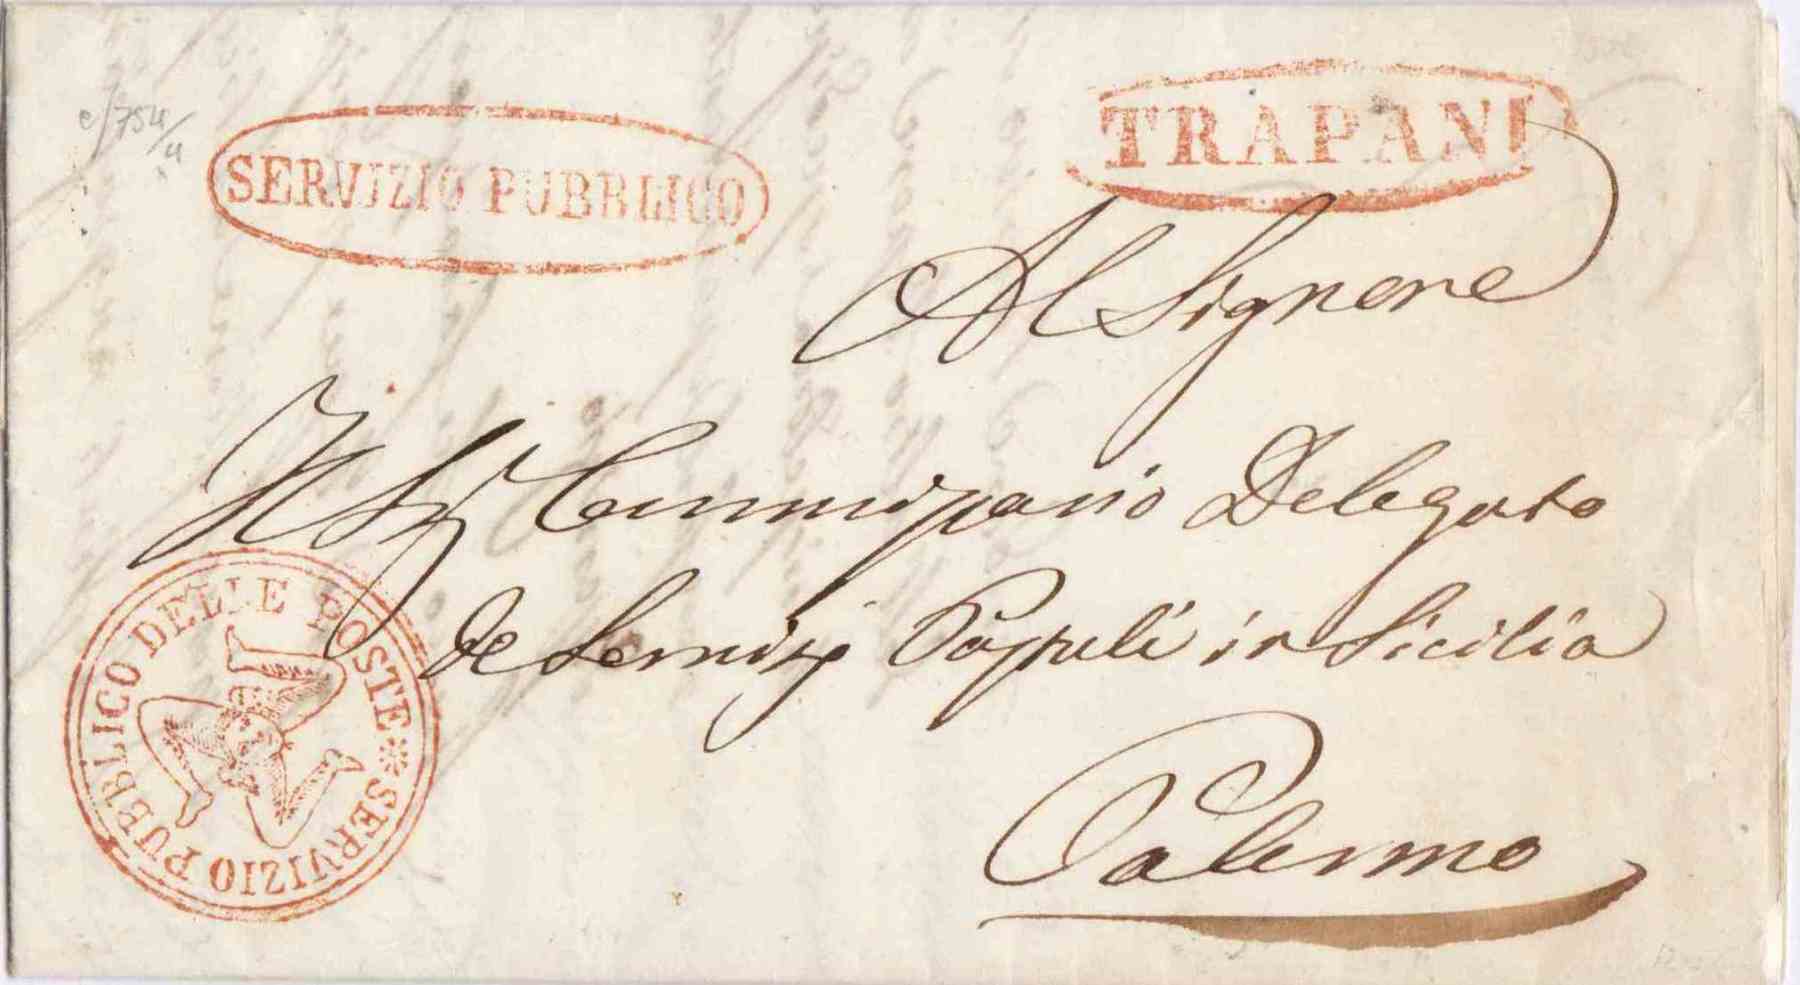 SERVIZIO PUBBLICO
TRAPANI
Al Signore
Il Sigr Commissario Delegato
de Servizi Postali in Sicilia
Palermo
SERVIZIO PUBBLICO DELLE POSTE